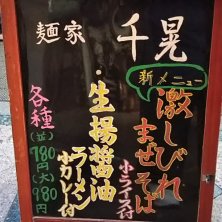 麺家 千晃
新メニュー
激しびれ
まぜそば
小ライス付
・生揚醤油
ラーメン
小カレー付
各種
(並)780円
(大)980円